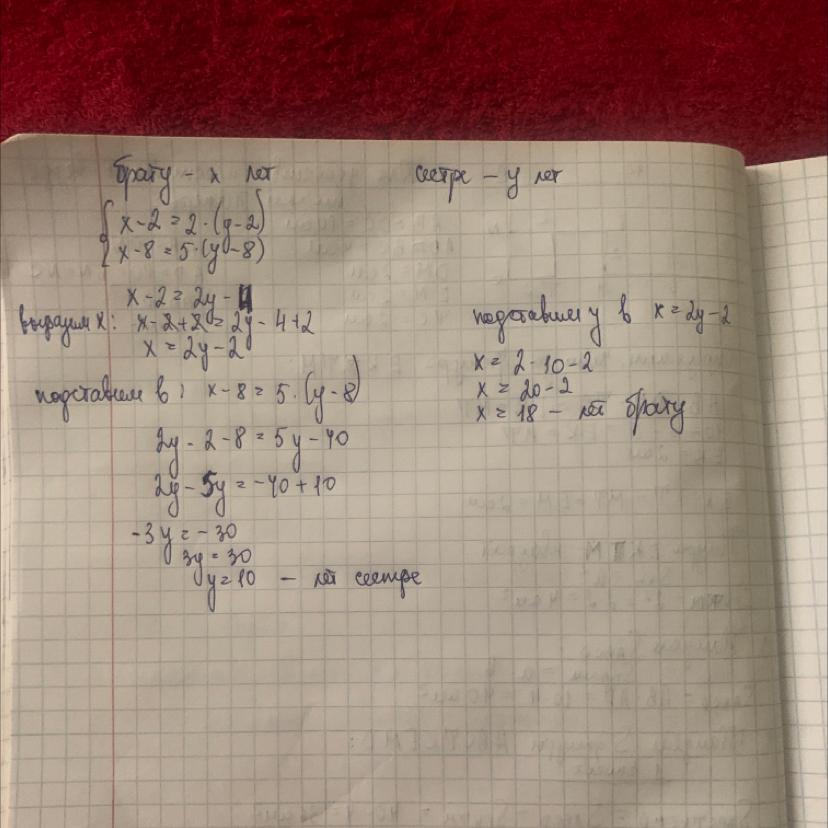 брату - x лет
сестре - y лет
x-2=2·(y-2)
x-8=5·(y-8)
x-2=2y-4
выразим x: x-2+2=2y-4+2
x=2y-2
подставим в: x-8=5·(y-8)
2y-2-8=5y-40
2y-5y=-40+10
-3y=-30
3y=30
y=10 - лет сестре
подставим y в x=2y-2
x=2·10-2
x=20-2
x=18 - лет брату